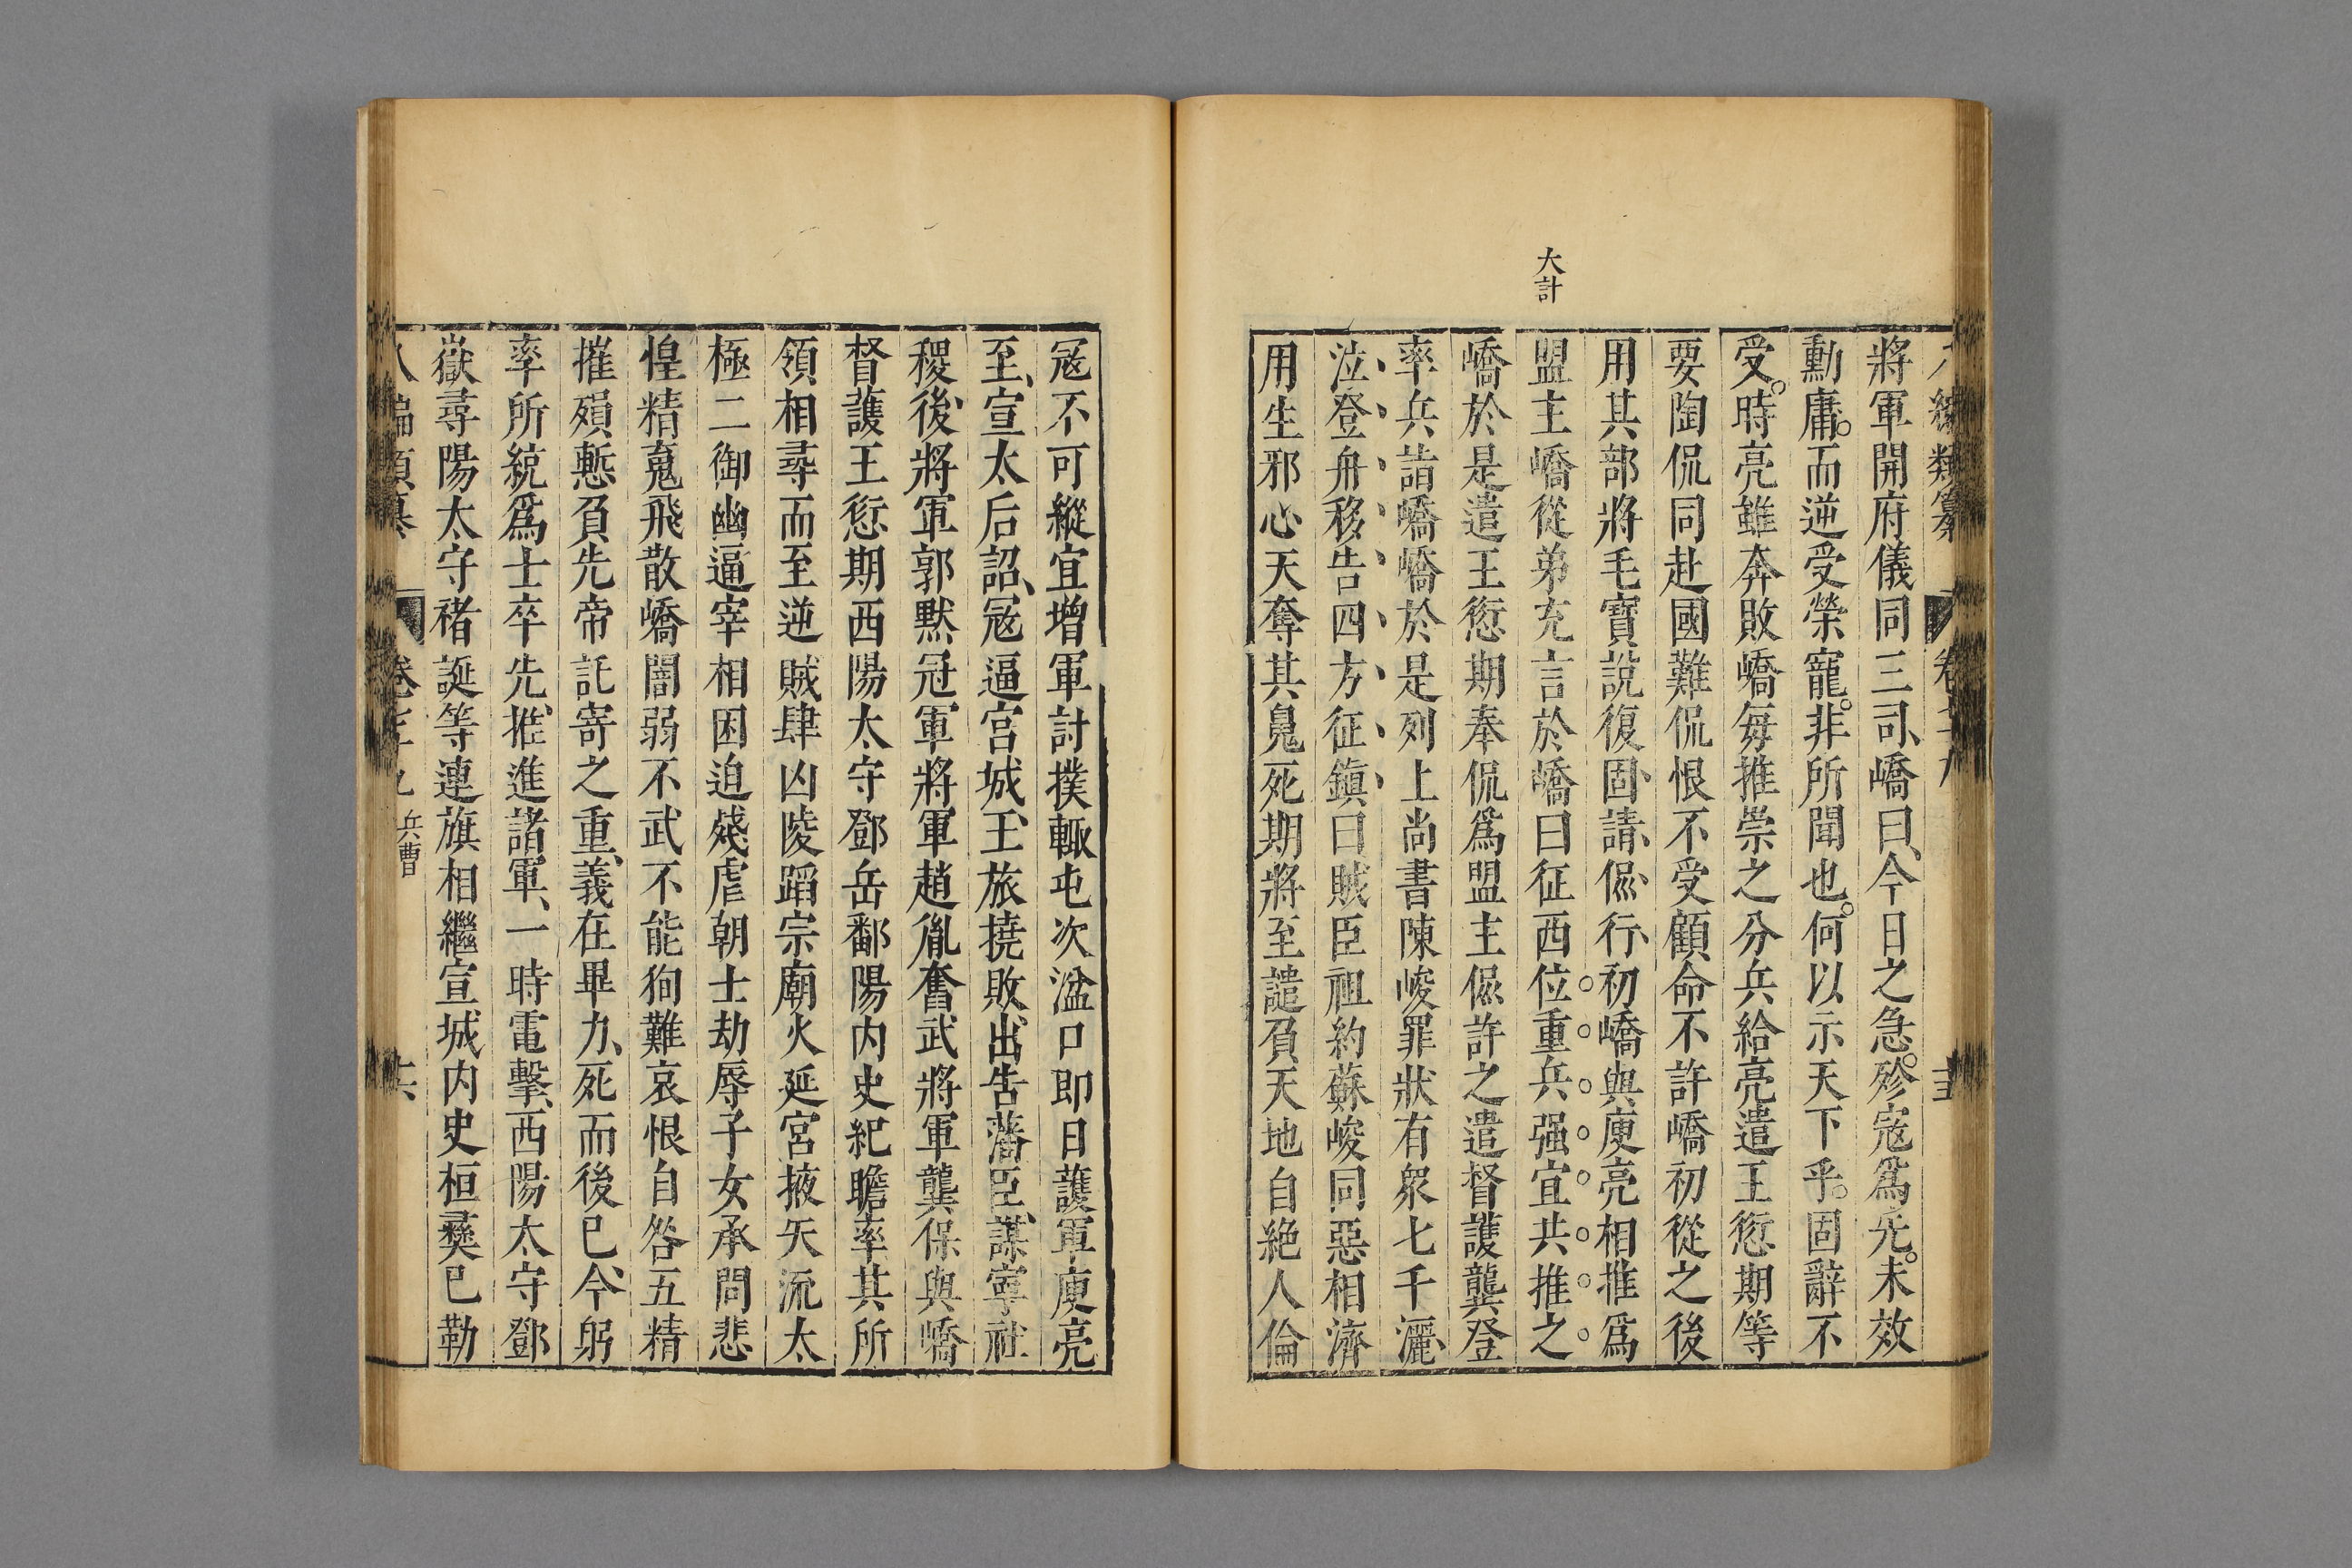 大計
將軍開府儀同三司嶠曰今日之急殄寇爲先未效
勳庸而逆受榮寵非所聞也何以示天下乎固辭不
受時亮雖奔敗嶠每推崇之分兵給亮遣王愆期等
要陶侃同赴國難侃恨不受顧命不許嶠初從之後
用其部將毛寶說復固請侃行初嶠與庾亮相推爲
盟主嶠從弟充言於嶠曰征西位重兵强宜共推之
嶠於是遣王愆期奉侃爲盟主侃許之遣督護龔登
率兵詣嶠嶠於是列上尚書陳峻罪狀有衆七千灑
泣登舟移告四方征鎮曰賊臣祖約蘇峻同惡相濟
用生邪心天奪其䰟死期將至譴負天地自絕人倫
寇不可縱宜增軍討撲輒屯次湓口即日護軍庾亮
至宣太后詔寇逼宮城王旅撓敗出告藩臣謀寧社
稷後將軍郭默冠軍將軍趙胤奮武將軍龔保與嶠
督護王愆期西陽太守鄧岳鄱陽内史紀瞻率其所
領相尋而至逆賊肆凶陵蹈宗廟火延宮掖矢流太
極二御幽逼宰相困迫殘虐朝士劫辱子女承問悲
惶精䰟飛散嶠闇弱不武不能狥難哀恨自咎五精
摧殞慙負先帝託寄之重義在畢力死而後已今躬
率所統爲士卒先推進諸軍一時電擊西陽太守鄧
嶽尋陽太守褚誕等連旗相繼宣城内史桓彝已勒
兵曹